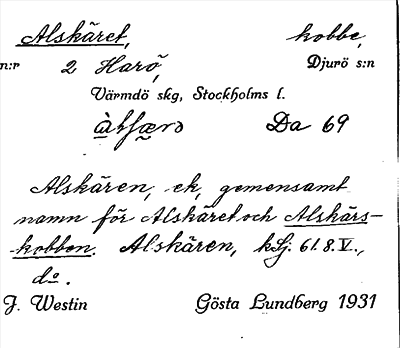 Alskäret, kobbe,
n:r 2 Harö, Djurö s:n
Värmdö skg, Stockholms l.
Da 69
Alskären, ek, gemensamt
namn för Alskäret och Alskärs-
kobben. Alskären, kSj. 61.8.V.,
do.
J. Westin Gösta Lundberg 1931